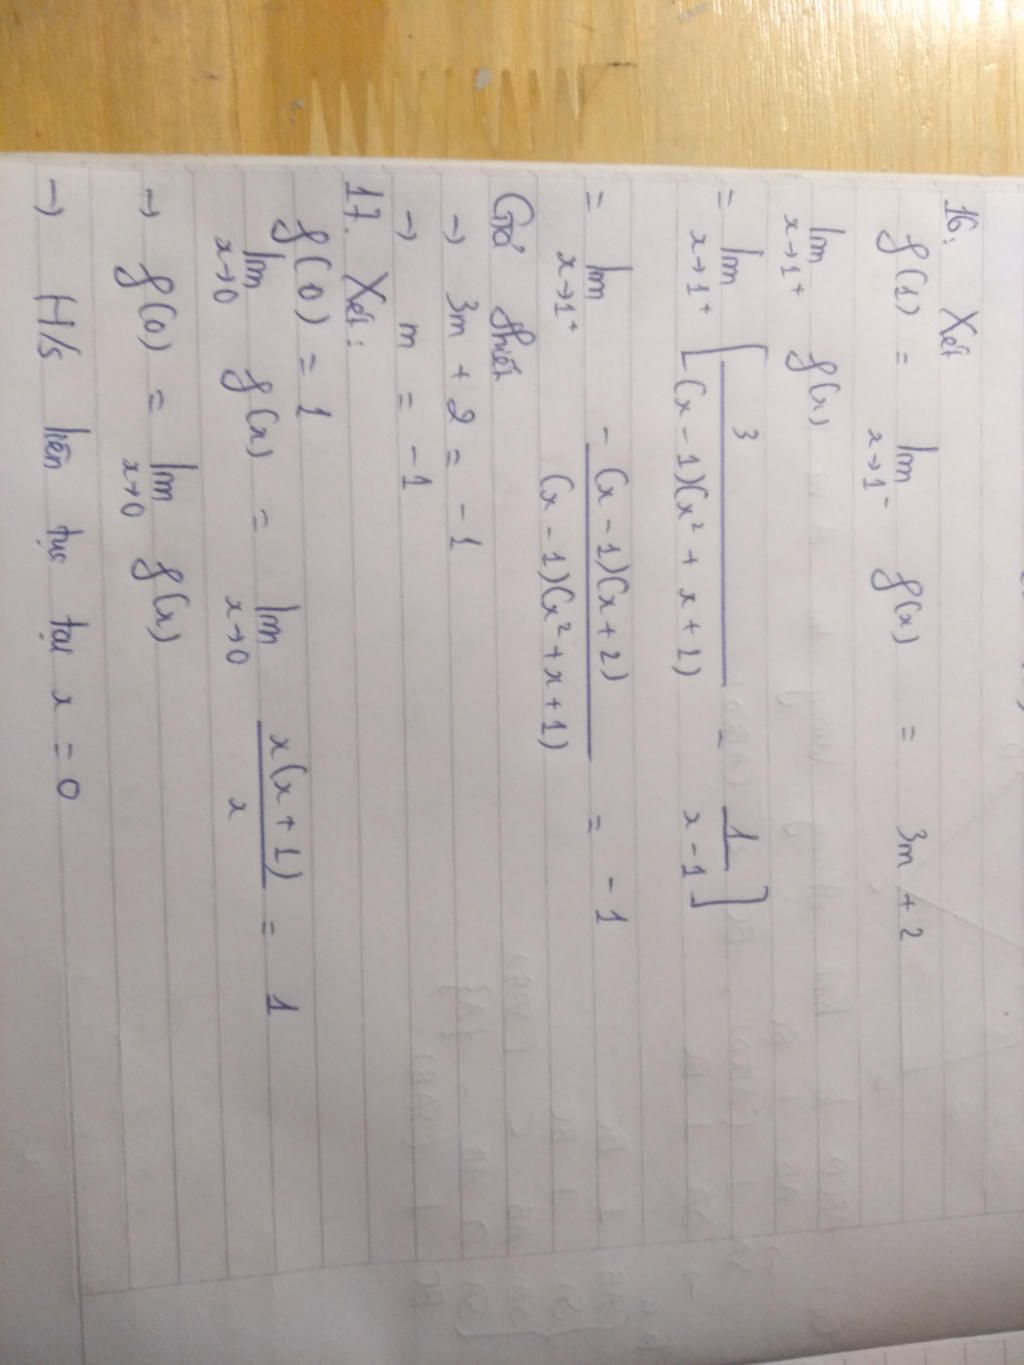 16. Xét
f(1) = lim x→1⁻ f(x) = 3m + 2
lim x→1⁺ f(x)
= lim x→1⁺ [ 3 / (x - 1)(x² + x + 1) - 1 / (x - 1) ]
= lim x→1⁺ -(x - 1)(x + 2) / (x - 1)(x² + x + 1) = -1
Giả thiết
→ 3m + 2 = -1
→ m = -1
17. Xét:
f(0) = 1
lim x→0 f(x) = lim x→0 x(x + 1) / x = 1
→ f(0) = lim x→0 f(x)
→ H/s liên tục tại x = 0